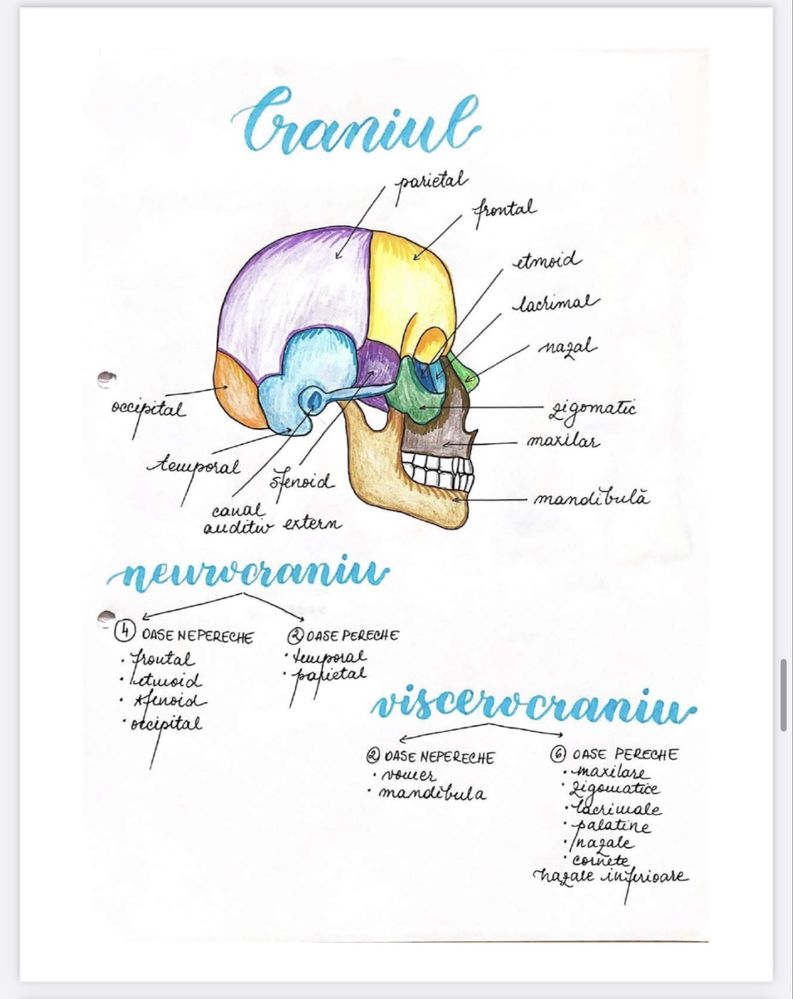 Craniul
parietal
frontal
etmoid
lacrimal
nazal
zigomatic
maxilar
mandibulă
occipital
temporal
sfenoid
canal
auditiv extern
neurocraniu
4 OASE NEPERECHE
• frontal
• etmoid
• sfenoid
• occipital
2 OASE PERECHE
• temporal
• parietal
viscerocraniu
2 OASE NEPERECHE
• vomer
• mandibula
6 OASE PERECHE
• maxilare
• zigomatice
• lacrimale
• palatine
• nazale
• cornete
nazale inferioare